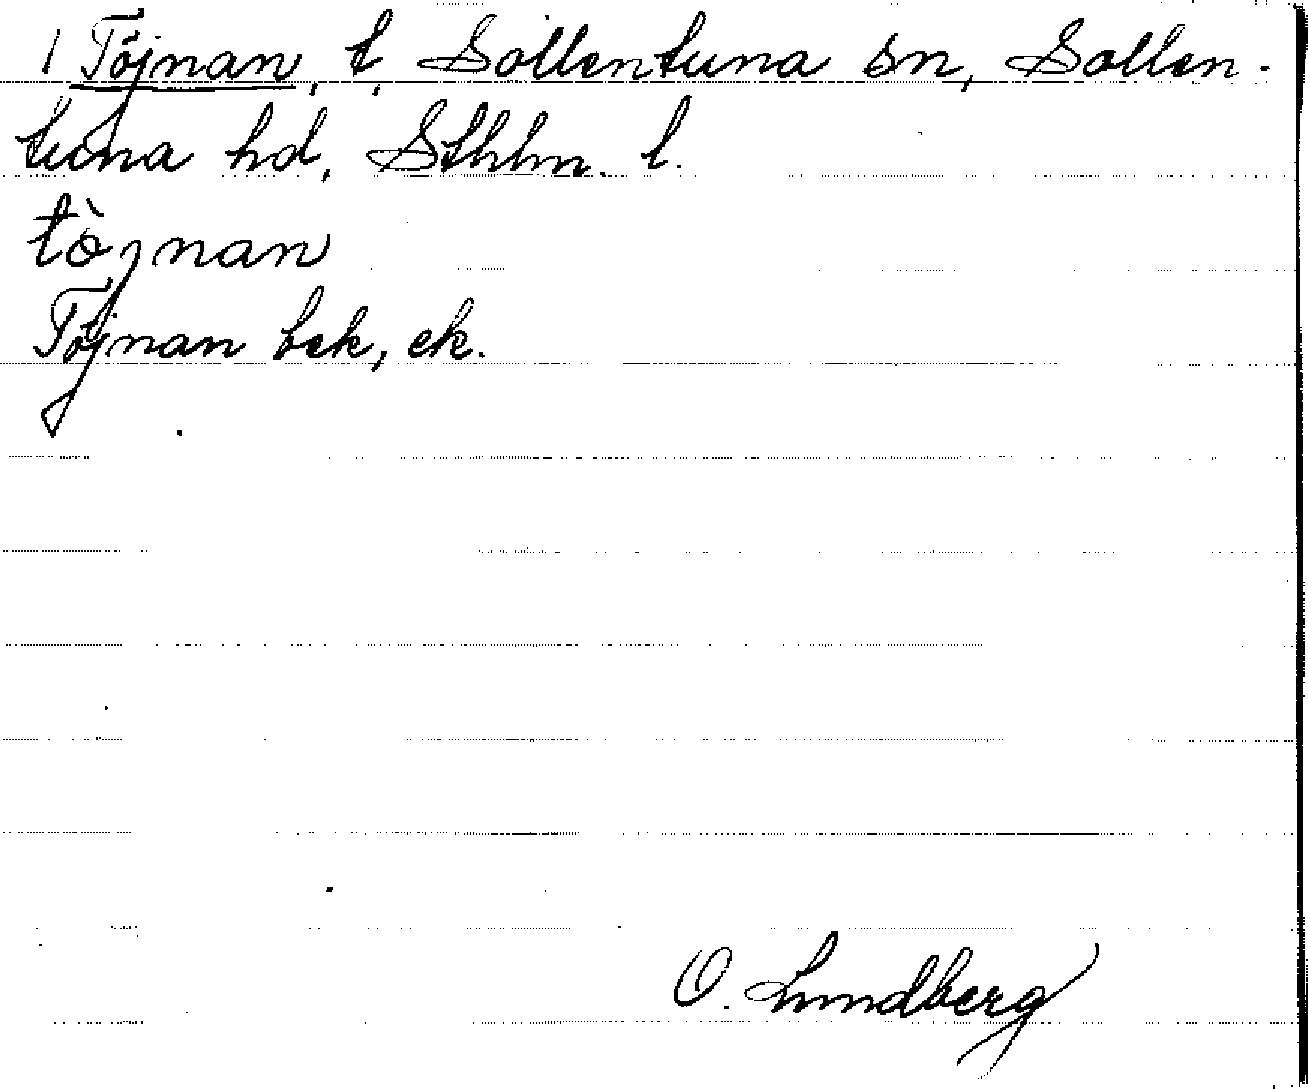 1 Töjnan, t, Sollentuna sn, Sollen-
tuna hd, Sthlm. l.
tò̤jnan
Töjnan bek, ek.
O. Lundberg